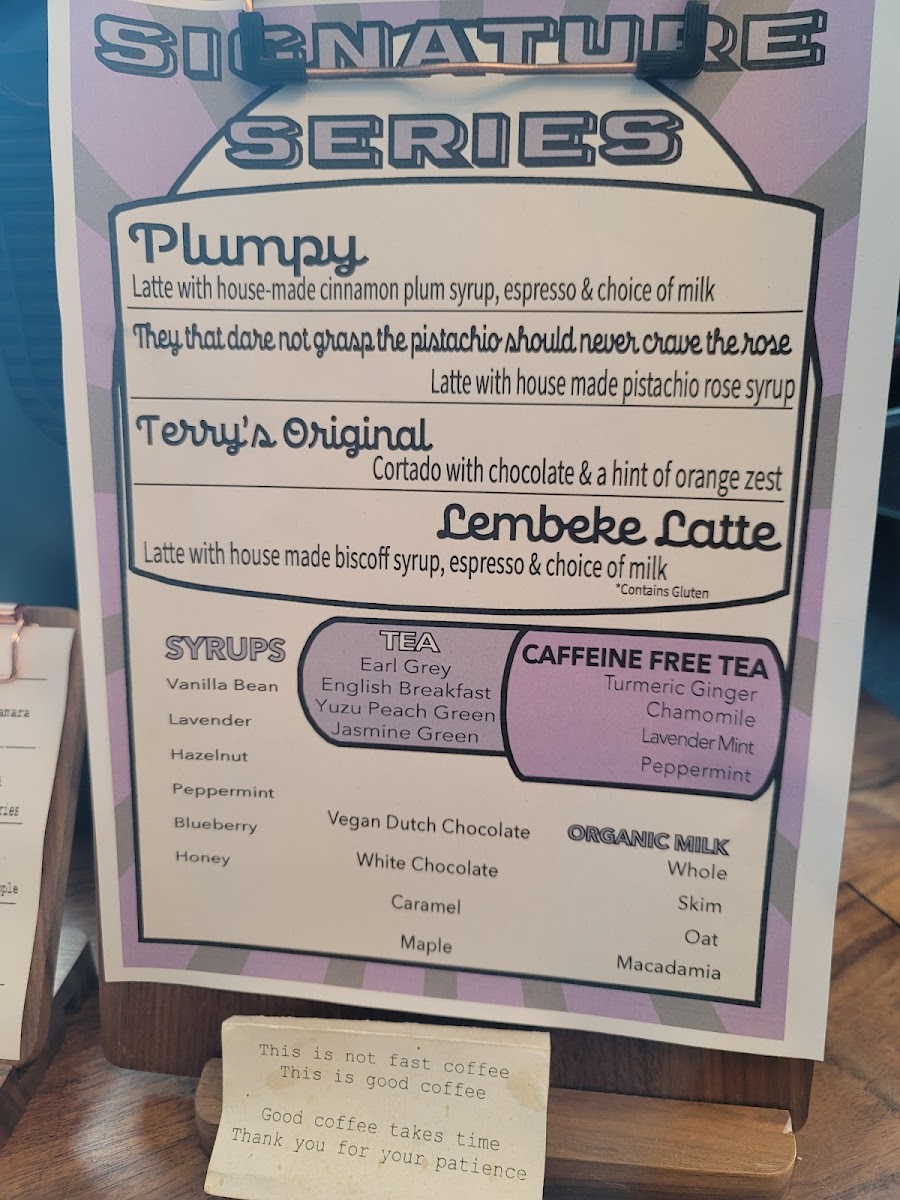 SIGNATURE
SERIES
Plumpy
Latte with house-made cinnamon plum syrup, espresso & choice of milk
They that dare not grasp the pistachio should never crave the rose
Latte with house made pistachio rose syrup
Terry's Original
Cortado with chocolate & a hint of orange zest
Lembeke Latte
Latte with house made biscoff syrup, espresso & choice of milk
*Contains Gluten
SYRUPS
Vanilla Bean
Lavender
Hazelnut
Peppermint
Blueberry
Honey
TEA
Earl Grey
English Breakfast
Yuzu Peach Green
Jasmine Green
CAFFEINE FREE TEA
Turmeric Ginger
Chamomile
Lavender Mint
Peppermint
Vegan Dutch Chocolate
White Chocolate
Caramel
Maple
ORGANIC MILK
Whole
Skim
Oat
Macadamia
This is not fast coffee
This is good coffee
Good coffee takes time
Thank you for your patience